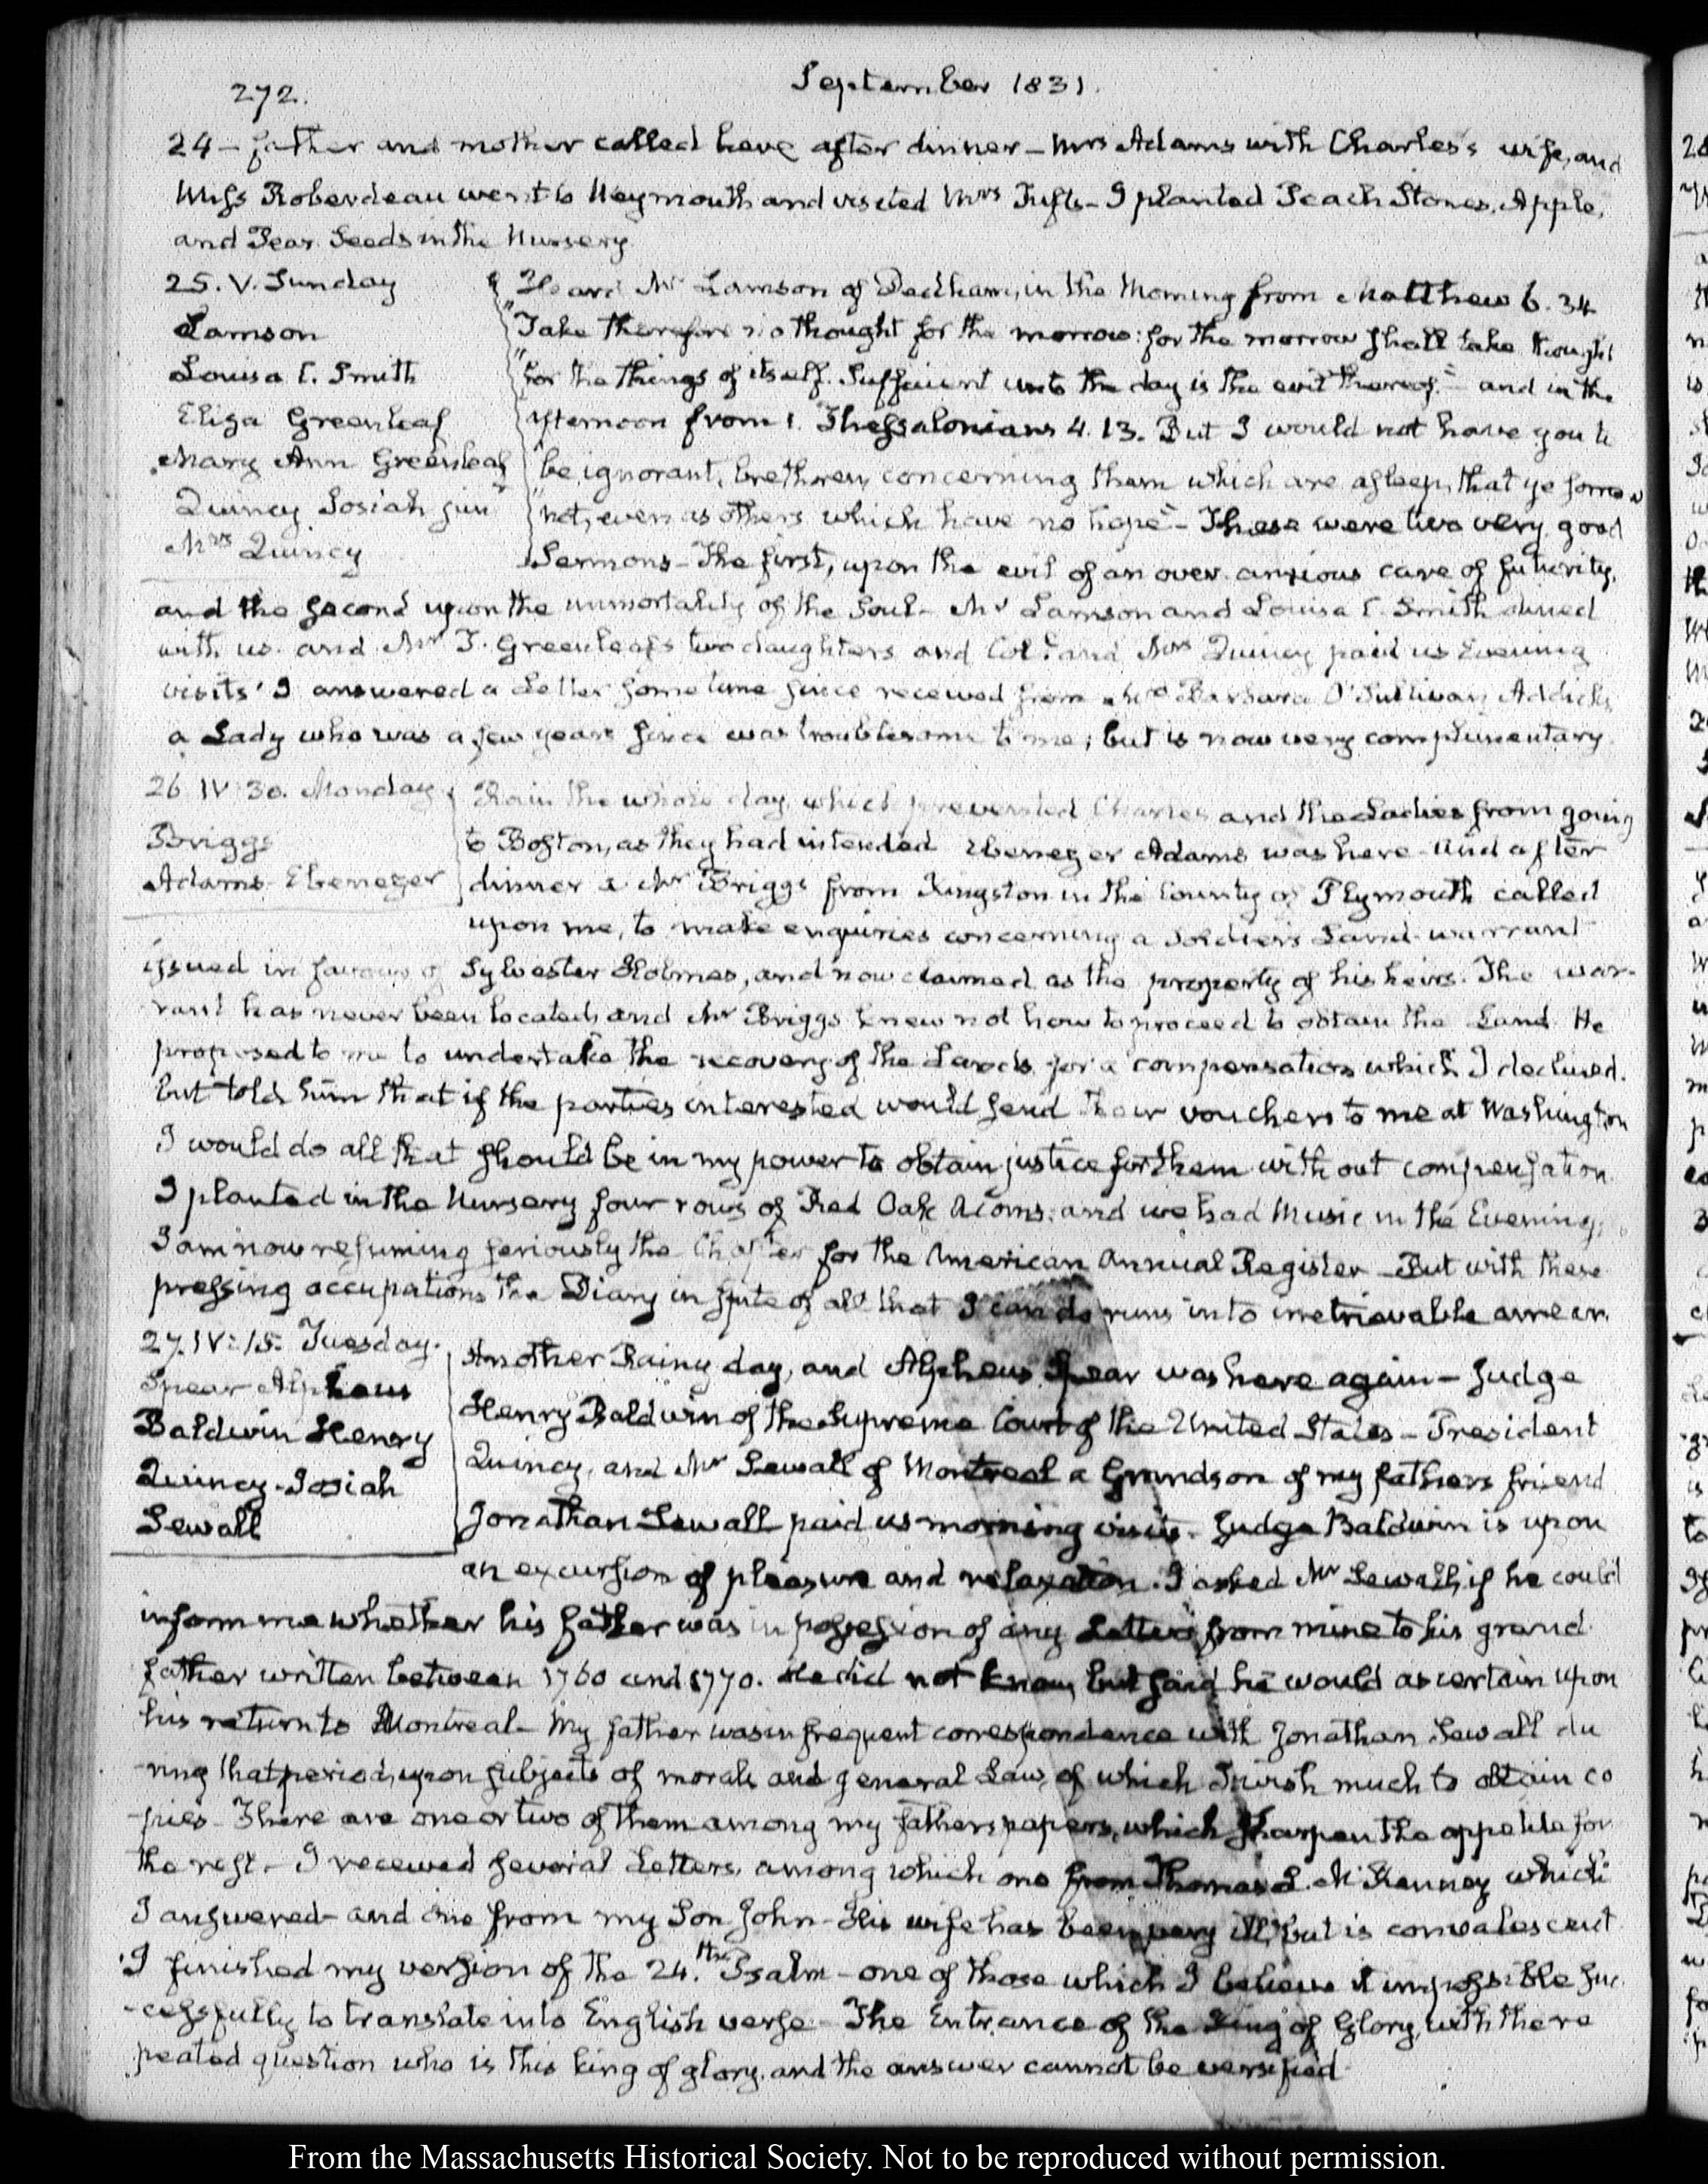 272.
September 1831.
24 - father and mother called here after dinner - Mrs Adams with Charles's wife, and
Miss Roberdeau went to Weymouth and visited Mrs Tufts - I planted Peach Stones, Apple,
and Pear Seeds in the Nursery
25. V. Sunday
Lamson
Louisa C. Smith
Eliza Greenleaf
Mary Ann Greenleaf
Quincy Josiah junr
Mrs Quincy
Heard Mr Lamson of Dedham, in the Morning from Matthew 6. 34
"Take therefore no thought for the morrow: for the morrow shall take thought
"for the things of itself. Sufficient unto the day is the evil thereof." - and in the
afternoon from 1. Thessalonians 4. 13. But I would not have you to
"be ignorant, brethren, concerning them which are asleep, that ye sorrow
"not, even as others which have no hope" - These were two very good
Sermons - The first, upon the evil of an over anxious care of futurity,
and the second upon the immortality of the Soul - Mr Lamson and Louisa C. Smith dined
with us. and Mr T. Greenleaf's two daughters and Col. and Mrs Quincy paid us Evening
visits' I answered a Letter some time since received from Mrs Barbara O'Sullivan Addicks
a Lady who was a few years since was troublesome to me; but is now very complimentary.
26. IV: 30. Monday
Briggs
Adams Ebenezer
Rain the whole day, which prevented Charles and the Ladies from going
to Boston, as they had intended Ebenezer Adams was here - And after
dinner a Mr Briggs from Kingston in the County of Plymouth called
upon me, to make enquiries concerning a Soldier's Land-warrant
issued in favour of Sylvester Holmes, and now claimed as the property of his heirs. The war-
rant has never been located, and Mr Briggs knew not how to proceed to obtain the Land. He
proposed to me to undertake the recovery of the Lands for a compensation which I declined.
but told him that if the parties interested would send their vouchers to me at Washington
I would do all that should be in my power to obtain justice for them without compensation.
I planted in the Nursery four rows of Red Oak Acorns; and we had Music in the Evening.
I am now resuming seriously the Chapter for the American Annual Register - But with these
pressing occupations the Diary in spite of all that I can do runs into irretrievable arrear.
27. IV: 15. Tuesday.
Spear Alpheus
Baldwin Henry
Quincy - Josiah
Sewall
Another Rainy day, and Alpheus Spear was here again - Judge
Henry Baldwin of the Supreme Court of the United States - President
Quincy, and Mr Sewall of Montreal a Grandson of my fathers friend
Jonathan Sewall paid us morning visits. Judge Baldwin is upon
an excursion of pleasure and relaxation. I asked Mr Sewall, if he could
inform me whether his father was in possession of any Letters from mine to his grand
father written between 1760 and 1770. He did not know, but said he would ascertain upon
his return to Montreal - My father was in frequent correspondence with Jonathan Sewall du
-ring that period, upon subjects of morals and general Law, of which I wish much to obtain co
-pies - There are one or two of them among my fathers papers, which sharpen the appetite for
the rest - I received several Letters, among which one from Thomas L. McKenney which
I answered - and one from my Son John - His wife has been very ill, but is convalescent
I finished my version of the 24.th Psalm - one of those which I believe it impossible suc
-cessfully to translate into English verse - The Entrance of the King of Glory, with the re
peated question who is this king of glory, and the answer cannot be versified
From the Massachusetts Historical Society. Not to be reproduced without permission.